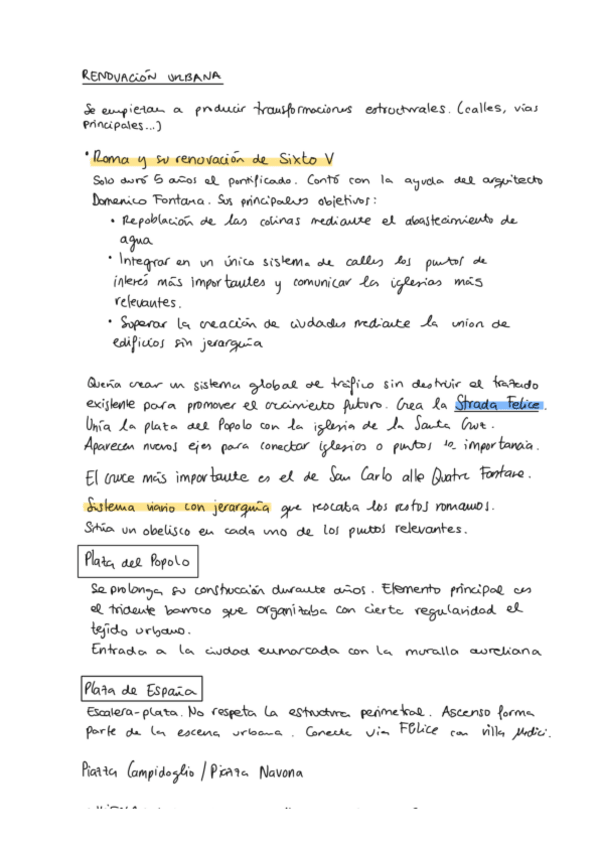 RENOVACIÓN URBANA
Se empiezan a producir transformaciones estructurales. (calles, vías
principales...)
• Roma y su renovación de Sixto V
Solo duró 5 años el pontificado. Contó con la ayuda del arquitecto
Domenico Fontana. Sus principales objetivos:
• Repoblación de las colinas mediante el abastecimiento de
agua
• Integrar en un único sistema de calles los puntos de
interés más importantes y comunicar las iglesias más
relevantes.
• Superar la creación de ciudades mediante la union de
edificios sin jerarquía
Quería crear un sistema global de tráfico sin destruir el trazado
existente para promover el crecimiento futuro. Crea la Strada Felice.
Unía la plaza del Popolo con la iglesia de la Santa Cruz.
Aparecen nuevos ejes para conectar iglesias o puntos de importancia.
El cruce más importante es el de San Carlo alle Quatre Fontane.
Sistema viario con jerarquía que rescaba los restos romanos.
Sitúa un obelisco en cada uno de los puntos relevantes.
Plaza del Popolo
Se prolonga su construcción durante años. Elemento principal es
el tridente barroco que organizaba con cierta regularidad el
tejido urbano.
Entrada a la ciudad enmarcada con la muralla aureliana
Plaza de España
Escalera-plaza. No respeta la estructura perimetral. Ascenso forma
parte de la escena urbana. Conecta vía Felice con villa Medici.
Piazza Campidoglio / Piazza Navona